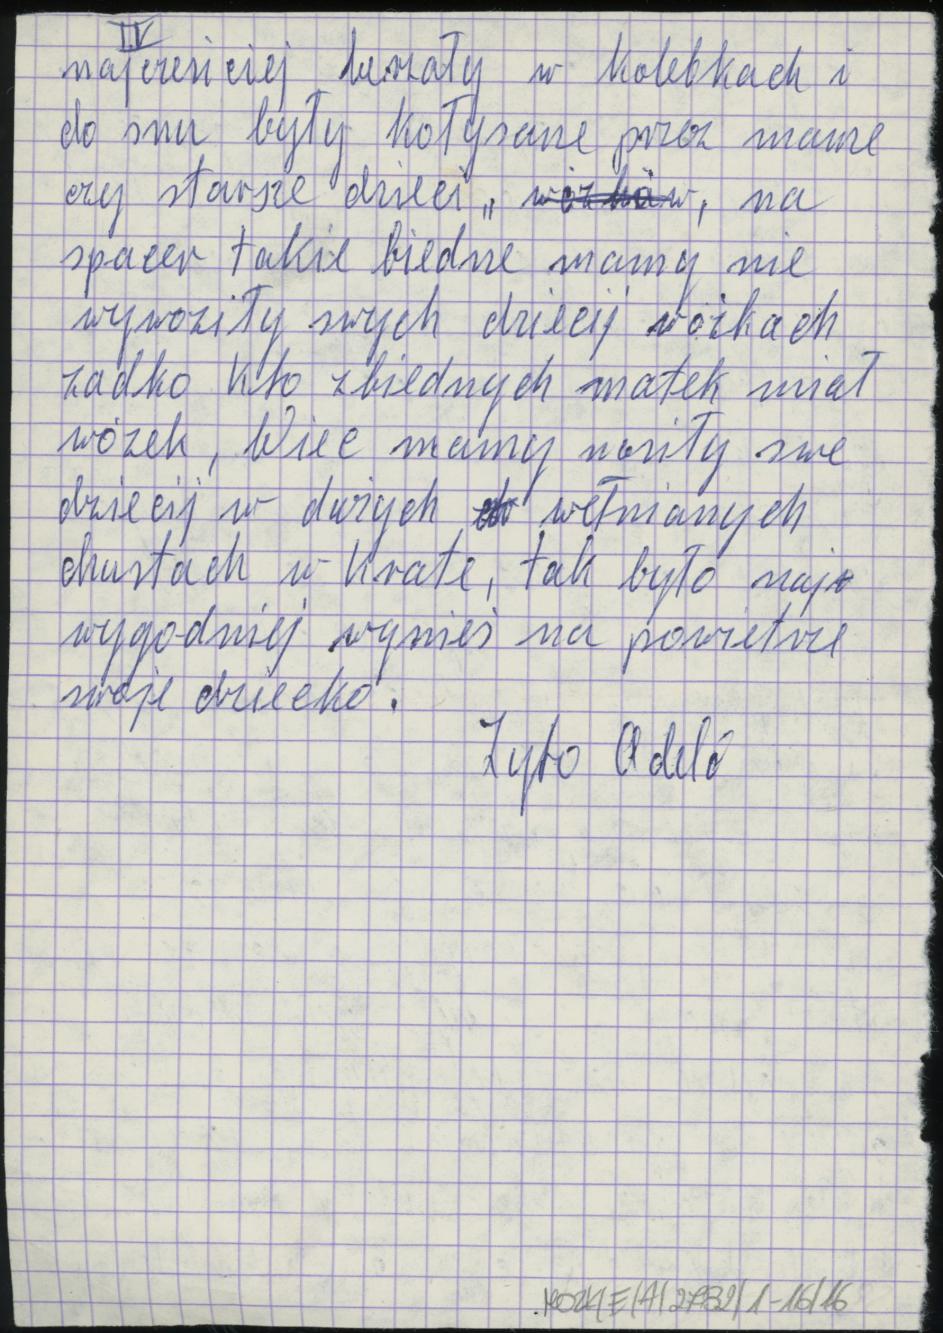 IV
najcześciej lerzały w kolebkach i
do snu były kołysane przez mame
czy starsze dzieci,, wózków, na
spacer takie biedne mamy nie
wywoziły swych dziecij wózkach
żadko kto zbiednych matek miał
wózek, Wiec mamy nosiły swe
dziecij w dużych wełnianych
chustach w krate, tak było naj
wygodniej wynieś na powietrze
swoje dziecko.
Żyto Adela